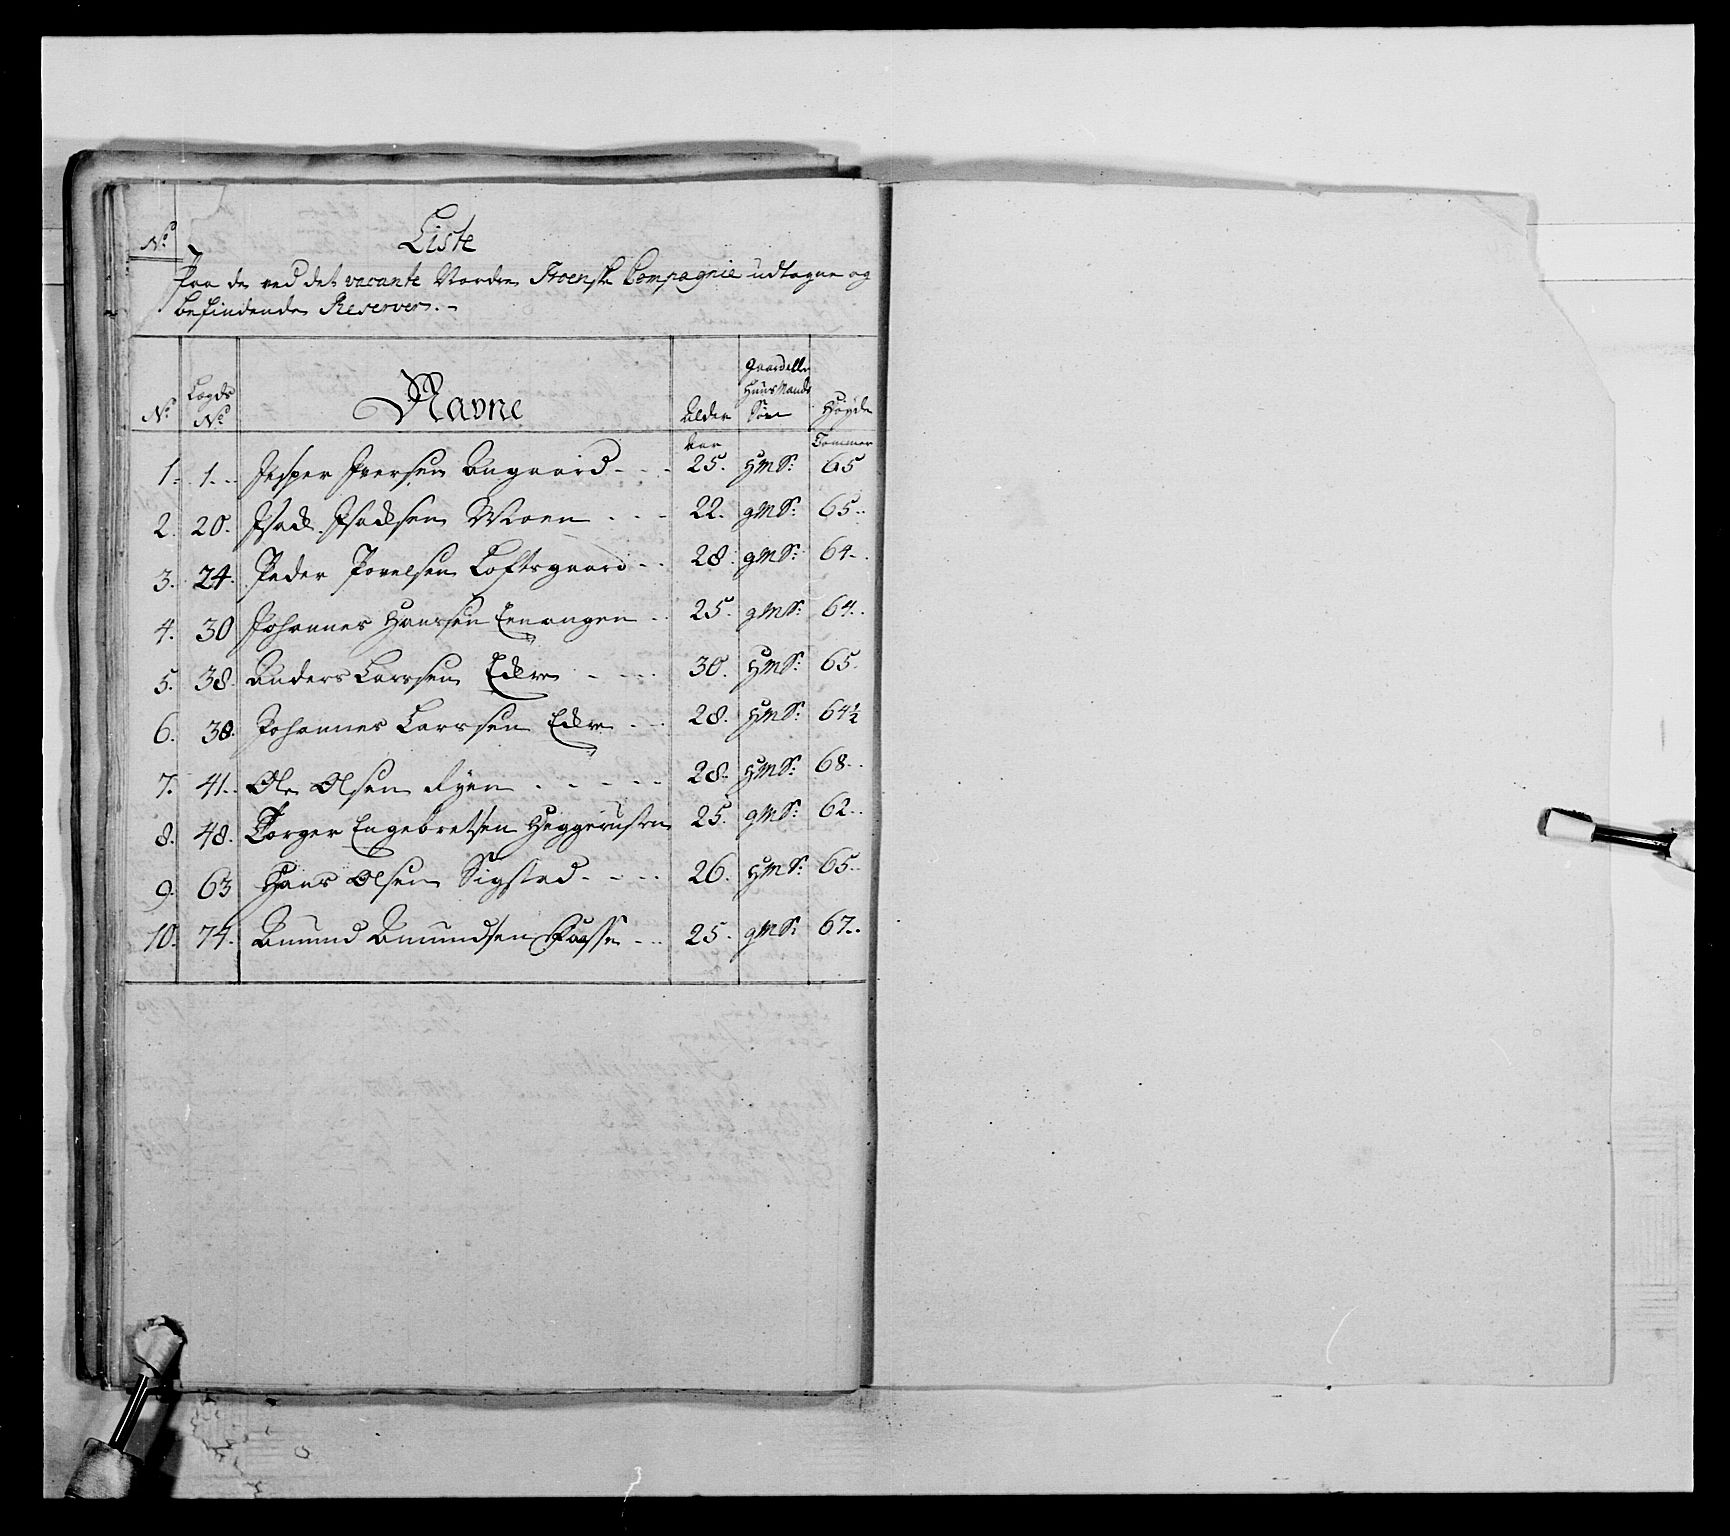 No
Liste
Paa de ved det vacante Nordre Froenske Compagnie udtagne og
befindende Reserver. -
No Lægds No Navne Alder Gaard eller Huusmands Søn Høyde
Aar Tommer
1. 1. Jesper Iversen Aagaard 25. HMS: 65
2. 20. Isach Isachsen Moen 22. GMS: 65.
3. 24. Peder Povelsen Loftsgaard 28. GMS: 64.
4. 30 Johannes Hansen 25. GMS: 64.
5. 38. Anders Larssen 30. HMS: 65.
6. 38. Johannes Larssen 28. HMS: 64½
7. 41. Ole Olsen Ryen 28. HMS: 68.
8. 48. Torger Engebretsen Heggerusten 25. GMS: 62.
9. 63 Hans Olsen Sigstad 26. HMS: 65.
10. 74. Amund Amundsen Faasse 25. GMS: 67.